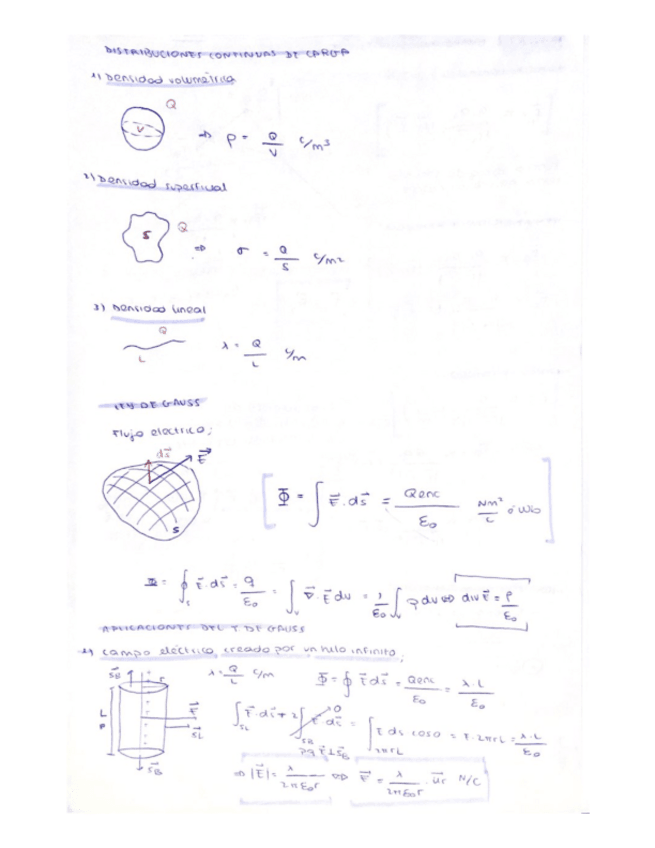 DISTRIBUCIONES CONTINUAS DE CARGA
1) Densidad volumétrica
Q
V
⇒ ρ = Q/V C/m³
2) Densidad superficial
Q
S
⇒ σ = Q/S C/m²
3) Densidad lineal
Q
L
λ = Q/L C/m
LEY DE GAUSS
Flujo eléctrico;
dS⃗ E⃗
S
Φ = ∫ E⃗ · dS⃗ = Qenc/ε₀ Nm²/C ó Wb
Φ = ∮s E⃗ · dS⃗ = q/ε₀ = ∫v ∇⃗ · E⃗ dv = 1/ε₀ ∫v ρ dv ⇔ div E⃗ = ρ/ε₀
APLICACIONES DE LEY DE GAUSS
1) Campo eléctrico creado por un hilo infinito;
S⃗B r
λ = Q/L C/m
Φ = ∮ E⃗ dS⃗ = Qenc/ε₀ = λ · L/ε₀
L
E⃗
S⃗L
S⃗B
∫SL E⃗ · dS⃗ + 2 ∫SB E⃗ dS⃗ = ∫2πrL E dS cos0 = E · 2πrL = λ · L/ε₀
0
pq E⃗ ⊥ S⃗B
⇒ |E⃗| = λ/2πε₀r ⇔ E⃗ = λ/2πε₀r · u⃗r N/C